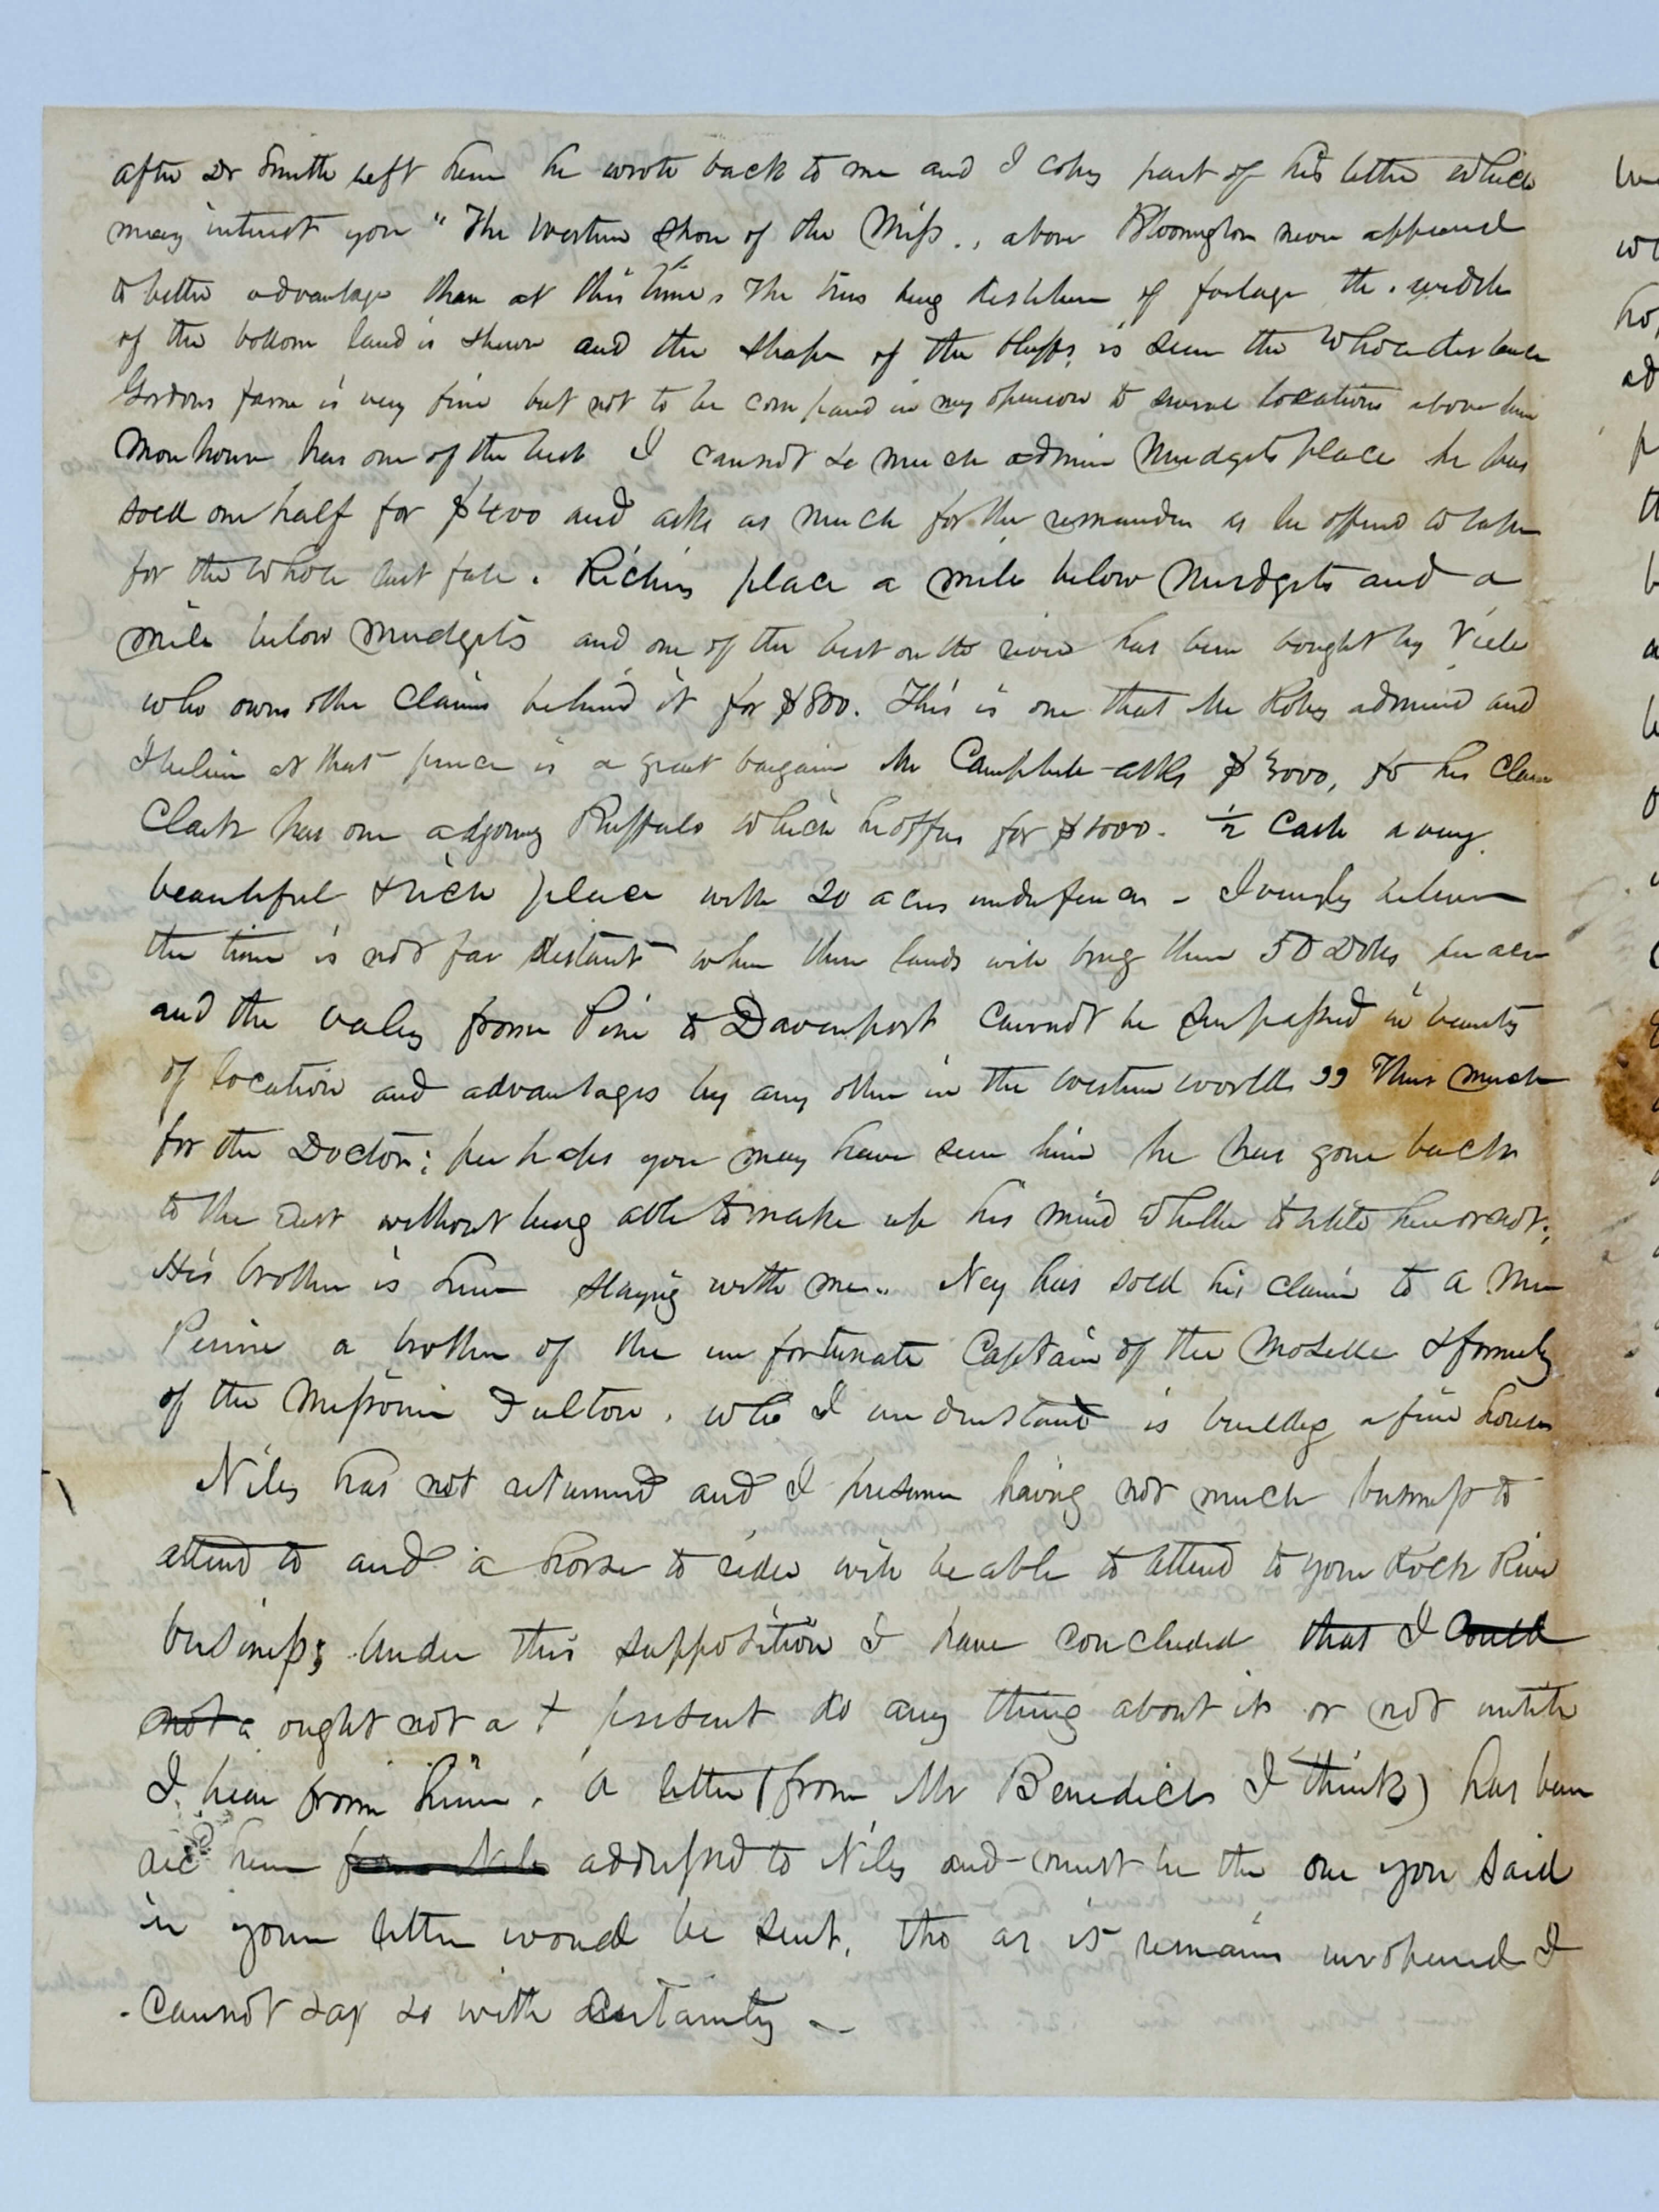 after Dr Smith left here he wrote back to me and I copy part of his letter which
may interest you "The western shore of the Miss., above Bloomington never appeared
to better advantage than at this time. The trees being destitute of foilage the width
of the bottom land is shewn and the shape of the bluffs is seen the whole distance
Gordons farm is very fine but not to be compared in my opinion to several locations above him
has one of the best I cannot so much admire Mudgets place he has
sold one half for $400 and asks as much for the remainder as he offered to take
for the whole last fall. place a mile below Mudgets and a
mile below Mudgets and one of the best on the river has been bought by Viele
who owns other claims behind it for $800. This is one that Mr Roby admired and
I believe at that price is a great bargain Mr Campbell asks $3000, for his claim
Clark has one adjoing Buffalo which he offers for $1000. ½ Cash a very
beautiful & rich place with 20 acres under fence - I verily believe
the time is not far distant when these lands will bring them 50 Dolls per acre
and the valey from Pine to Davenport cannot be surpassed in beauty
of location and advantages by any other in the western world" Thus much
for the Doctor; perhaps you may have seen him he has gone back
to the East without being able to make up his mind whether to settle here or not;
His brother is here staying with me. Ney has sold his claim to a Mr
Perrin a brother of the unfortunate Captain of the Moselle & formerly
of the Missouri Fulton, who I understand is building a fine house
Niles has not returned and I presume having not much business to
attend to and a horse to ride will be able to attend to your Rock River
business; Under this supposition I have concluded that I could
not a ought not at present do any thing about it or not untill
I hear from him. A letter (from Mr Benedict I think) has been
rec here from Niles addressed to Niles and must be the one you said
in your letter would be sent, tho as it remains unopened I
cannot say so with certainty -